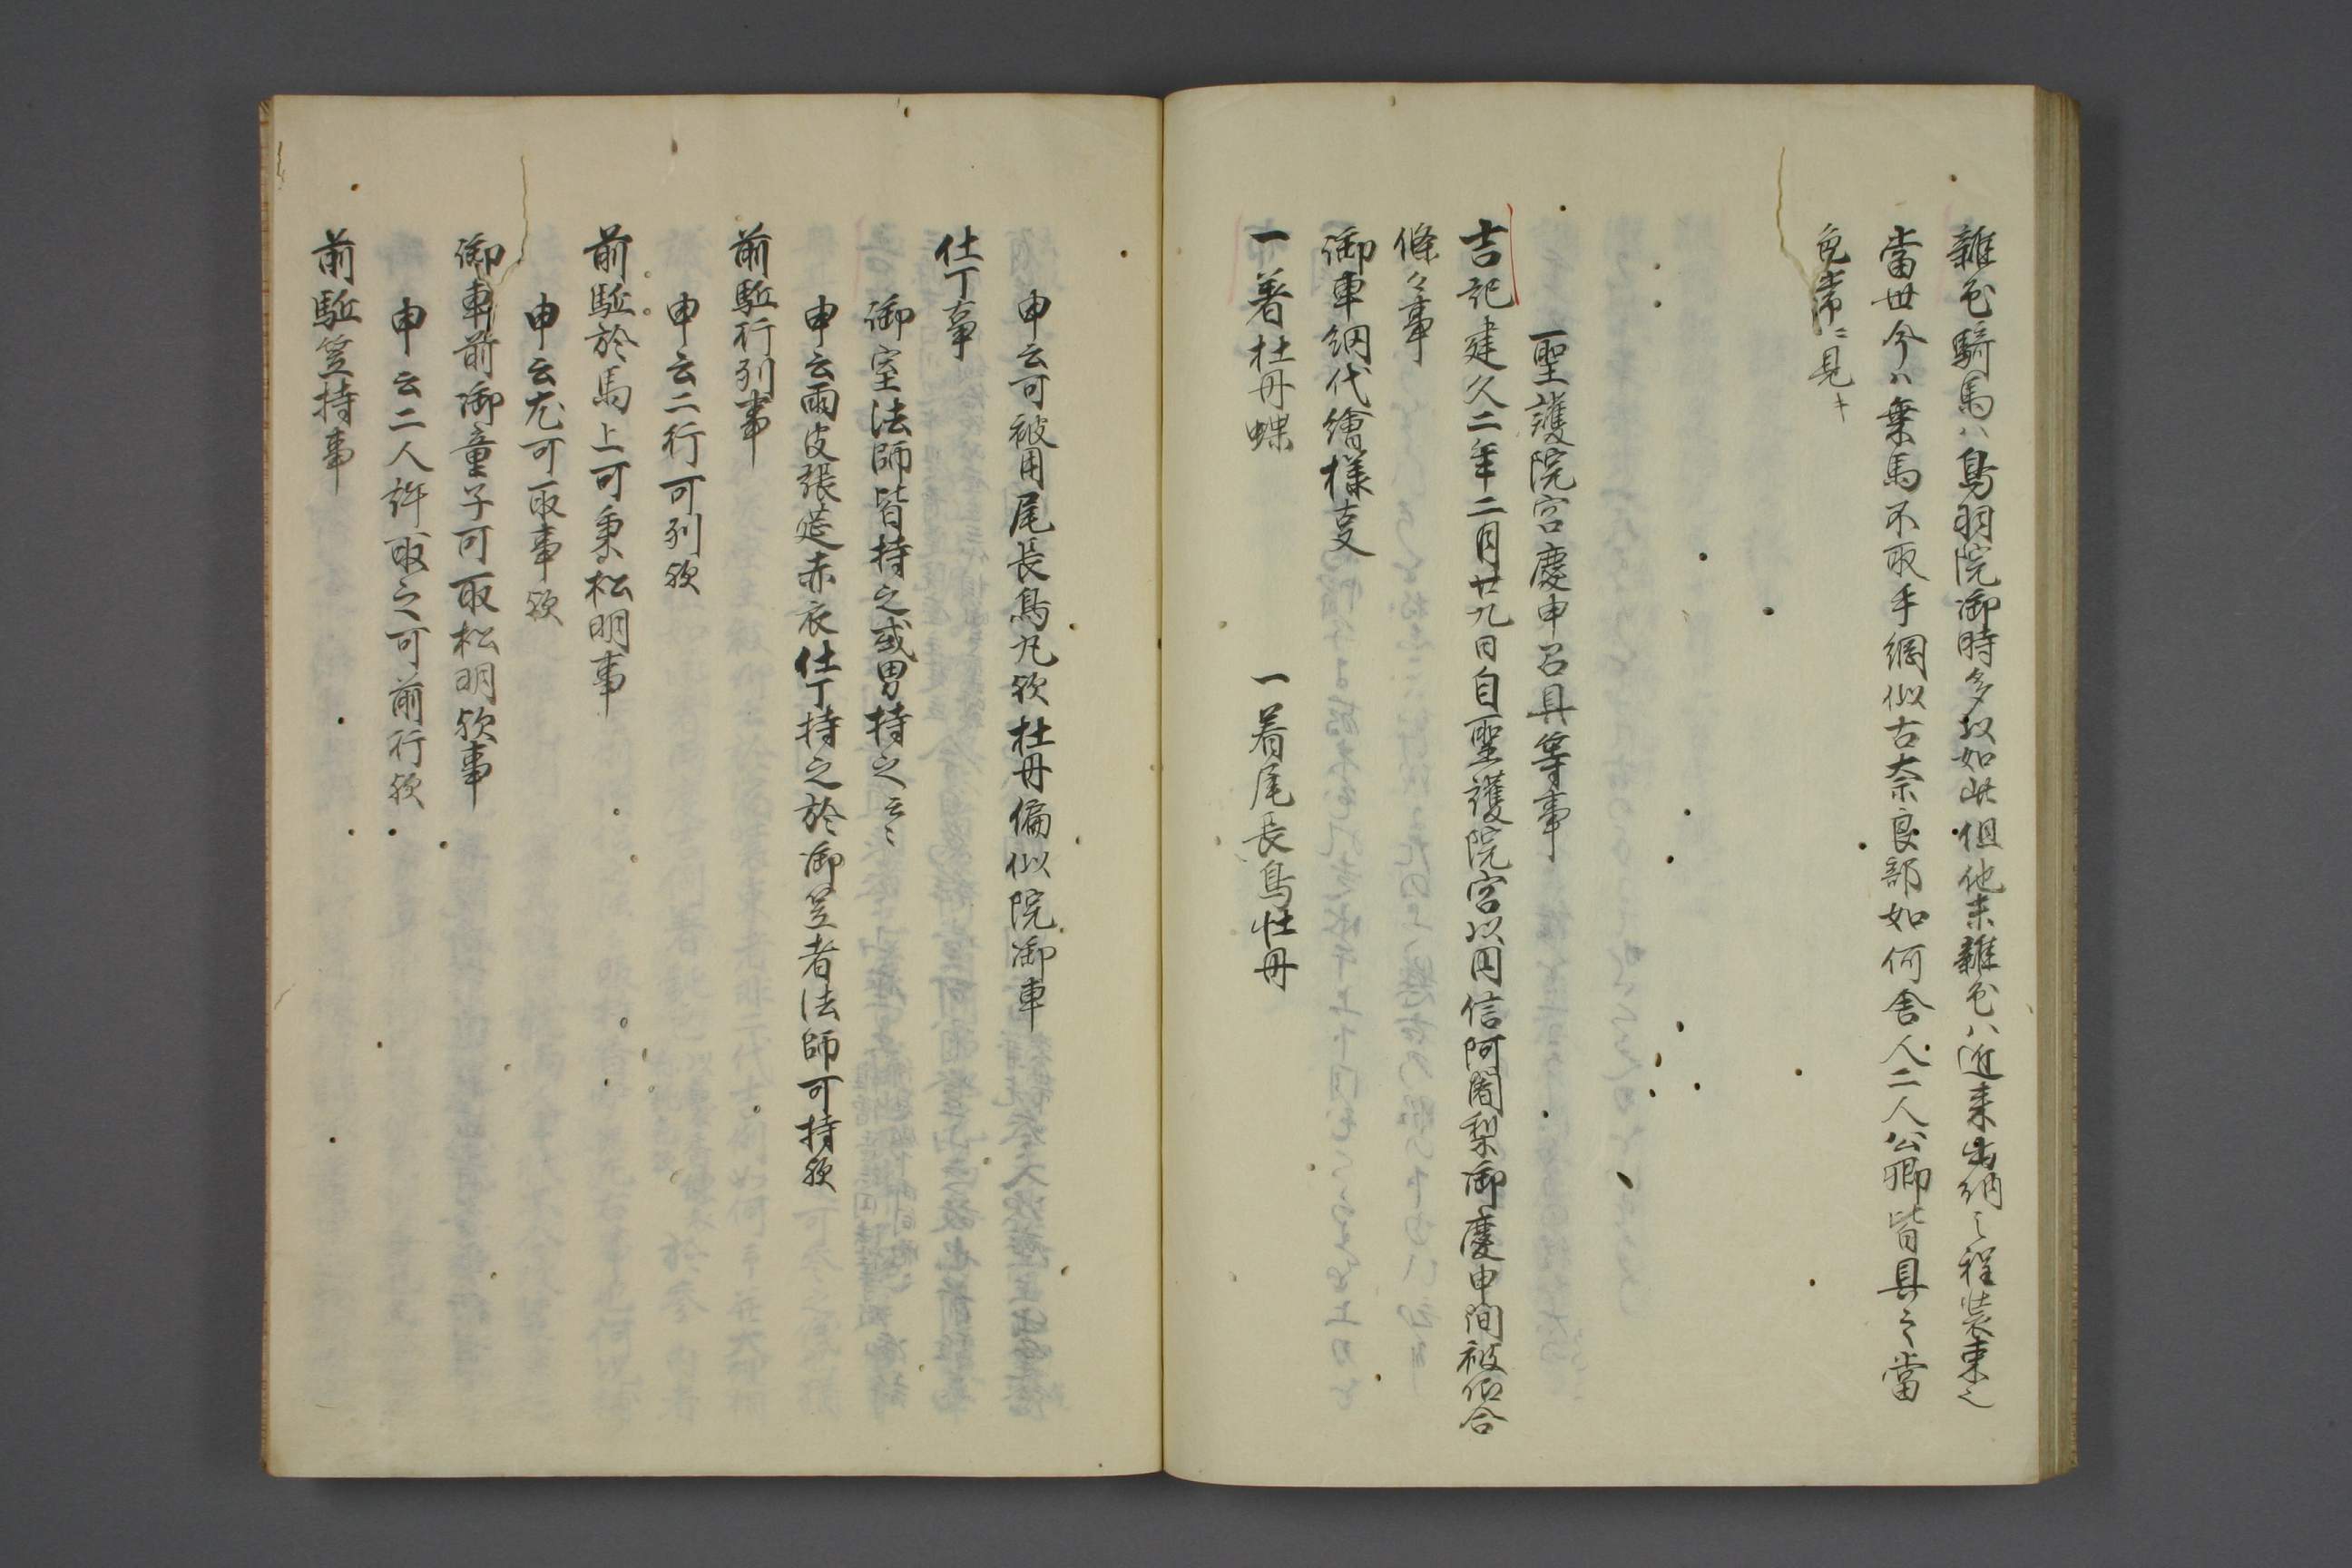 雜色騎馬ハ鳥羽院御時多以如此但他末雜色ハ近来出納之程装束之
當世今ハ乗馬不取手綱似古奈良部如何舎人二人公卿皆具之當
色常ニ見
一聖護院宮慶申召具等事
吉記建久二年二月廿九日自聖護院宮以円信阿闍梨御慶申間被仰合
條々事
御車網代繪様支
一著杜丹蝶　一着尾長鳥杜丹
申云可被用尾長鳥丸欤杜丹偏似院御車
仕丁事
御室法師皆持之或男持之云々
申云雨皮張莚赤衣仕丁持之於御笠者法師可持欤
前駈行列事
申云二行可列欤
前駈於馬上可秉松明事
申云尤可取事欤
御車前御童子可取松明欤事
申云二人許取之可前行欤
前駈笠持事